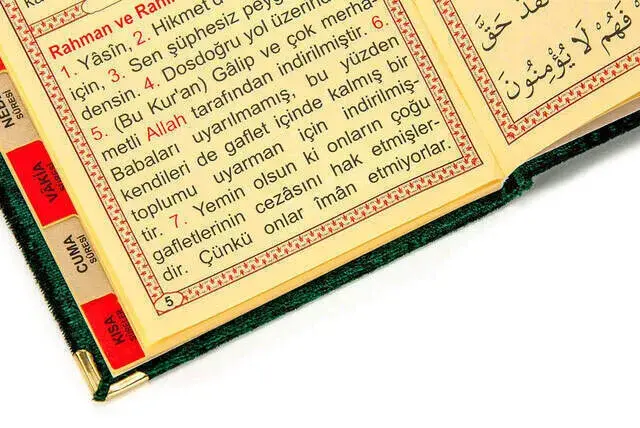 Rahman ve Rahî
1. Yâsîn, 2. Hikmet d
için, 3. Sen şüphesiz peyg
densin. 4. Dosdoğru yol üzerind
5. (Bu Kur'an) Gâlip ve çok merha-
metli Allah tarafından indirilmiştir. 6.
Babaları uyarılmamış, bu yüzden
kendileri de gaflet içinde kalmış bir
toplumu uyarman için indirilmiş-
tir. 7. Yemin olsun ki onların çoğu
gafletlerinin cezâsını hak etmişler-
dir. Çünkü onlar îmân etmiyorlar.
5
حَقَّ
فَهُمْ لَا يُؤْمِنُونَ
SÛRESİ
VÂKIA
SÛRESİ
CUMA
SÛRESİ
KISA
SÛRELER